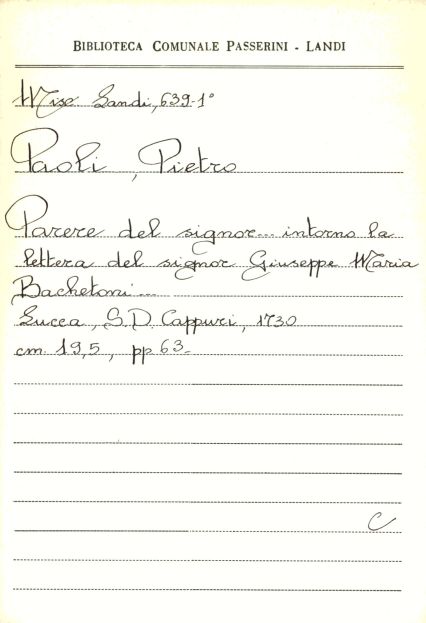 BIBLIOTECA COMUNALE PASSERINI - LANDI
Misc Landi, 639-1°
Paoli, Pietro
Parere del signor... intorno la
lettera del signor Giuseppe Maria
Bachetoni...
Lucca, S.D. Cappuri, 1730
cm. 19,5, pp 63-
C